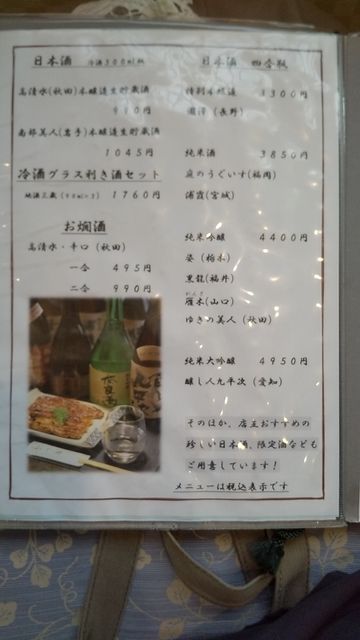 日本酒 冷酒300ml瓶
高清水(秋田)本醸造生貯蔵酒
910円
南部美人(岩手)本醸造生貯蔵酒
1045円
冷酒グラス利き酒セット
地酒三蔵 1760円
お燗酒
高清水・辛口(秋田)
一合 495円
二合 990円
日本酒 四合瓶
特別本醸造 3300円
(長野)
純米酒 3850円
庭のうぐいす(福岡)
浦霞(宮城)
純米吟醸 4400円
姿(栃木)
黒龍(福井)
雁木(山口)
ゆきの美人(秋田)
純米大吟醸 4950円
醸し人九平次(愛知)
そのほか、店主おすすめの
珍しい日本酒、限定酒なども
ご用意しています!
メニューは税込表示です